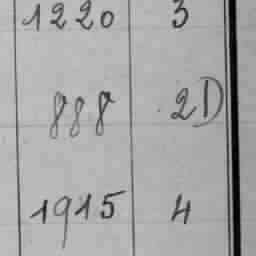 1220 3
888 2D
1915 4